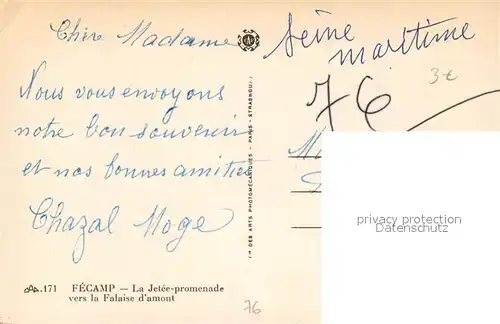 Chère Madame
Nous vous envoyons
notre bon souvenir
et nos bonnes amitiés
Chazal Moge
171 FÉCAMP — La Jetée-promenade
vers la Falaise d'amont
76
DES ARTS PHOTOMÉCANIQUES - PARIS - STRASBOURG
Seine
maritime
76
3€
privacy protection
Datenschutz